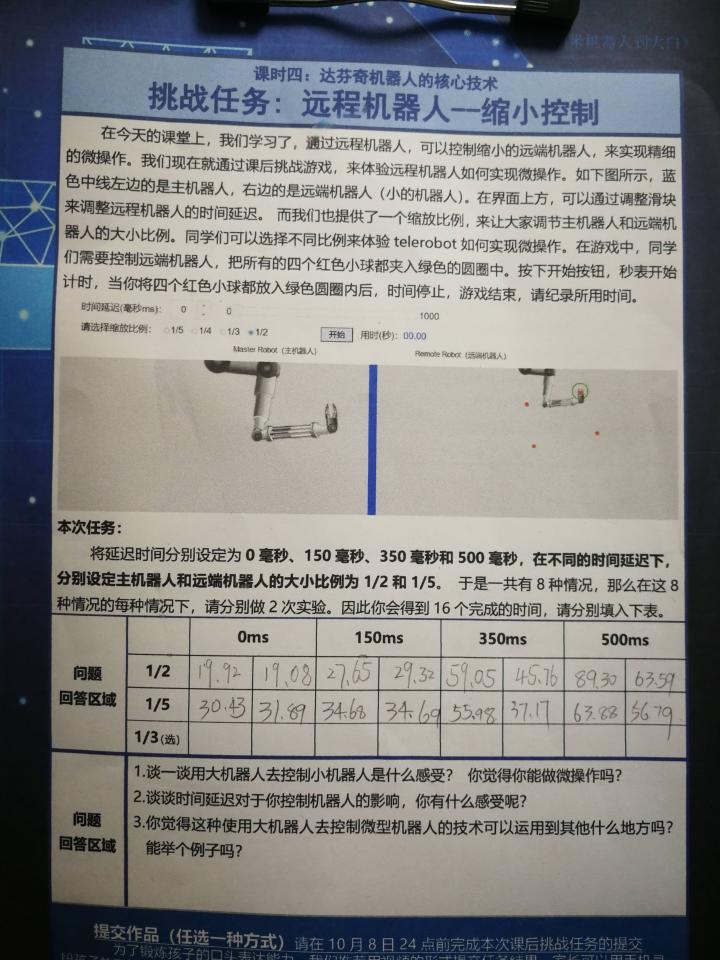 米机器人到大门》
课时四：达芬奇机器人的核心技术
挑战任务：远程机器人--缩小控制
在今天的课堂上，我们学习了，通过远程机器人，可以控制缩小的远端机器人，来实现精细
的微操作。我们现在就通过课后挑战游戏，来体验远程机器人如何实现微操作。如下图所示，蓝
色中线左边的是主机器人，右边的是远端机器人（小的机器人）。在界面上方，可以通过调整滑块
来调整远程机器人的时间延迟。 而我们也提供了一个缩放比例，来让大家调节主机器人和远端机
器人的大小比例。同学们可以选择不同比例来体验 telerobot 如何实现微操作。在游戏中，同学
们需要控制远端机器人，把所有的四个红色小球都夹入绿色的圆圈中。按下开始按钮，秒表开始
计时，当你将四个红色小球都放入绿色圆圈内后，时间停止，游戏结束，请纪录所用时间。
时间延迟(毫秒ms)： 0 0 1000
请选择缩放比例： 1/5 1/4 1/3 1/2 开始 用时(秒)： 00.00
Master Robot（主机器人） Remote Robot（远端机器人）
本次任务：
将延迟时间分别设定为 0 毫秒、150 毫秒、350 毫秒和 500 毫秒，在不同的时间延迟下，
分别设定主机器人和远端机器人的大小比例为 1/2 和 1/5。 于是一共有 8 种情况，那么在这 8
种情况的每种情况下，请分别做 2 次实验。因此你会得到 16 个完成的时间，请分别填入下表。
0ms 150ms 350ms 500ms
问题
回答区域
1/2 19.92 19.08 27.65 29.32 59.05 45.76 89.30 63.59
1/5 30.43 31.89 34.68 34.69 55.98 37.17 63.88 56.79
1/3(选)
问题
回答区域
1.谈一谈用大机器人去控制小机器人是什么感受？ 你觉得你能做微操作吗？
2.谈谈时间延迟对于你控制机器人的影响，你有什么感受呢？
3.你觉得这种使用大机器人去控制微型机器人的技术可以运用到其他什么地方吗？
能举个例子吗？
提交作品（任选一种方式）请在 10 月 8 日 24 点前完成本次课后挑战任务的提交
为了锻炼孩子的口头表达能力，我们推荐用视频的形式提交任务结果